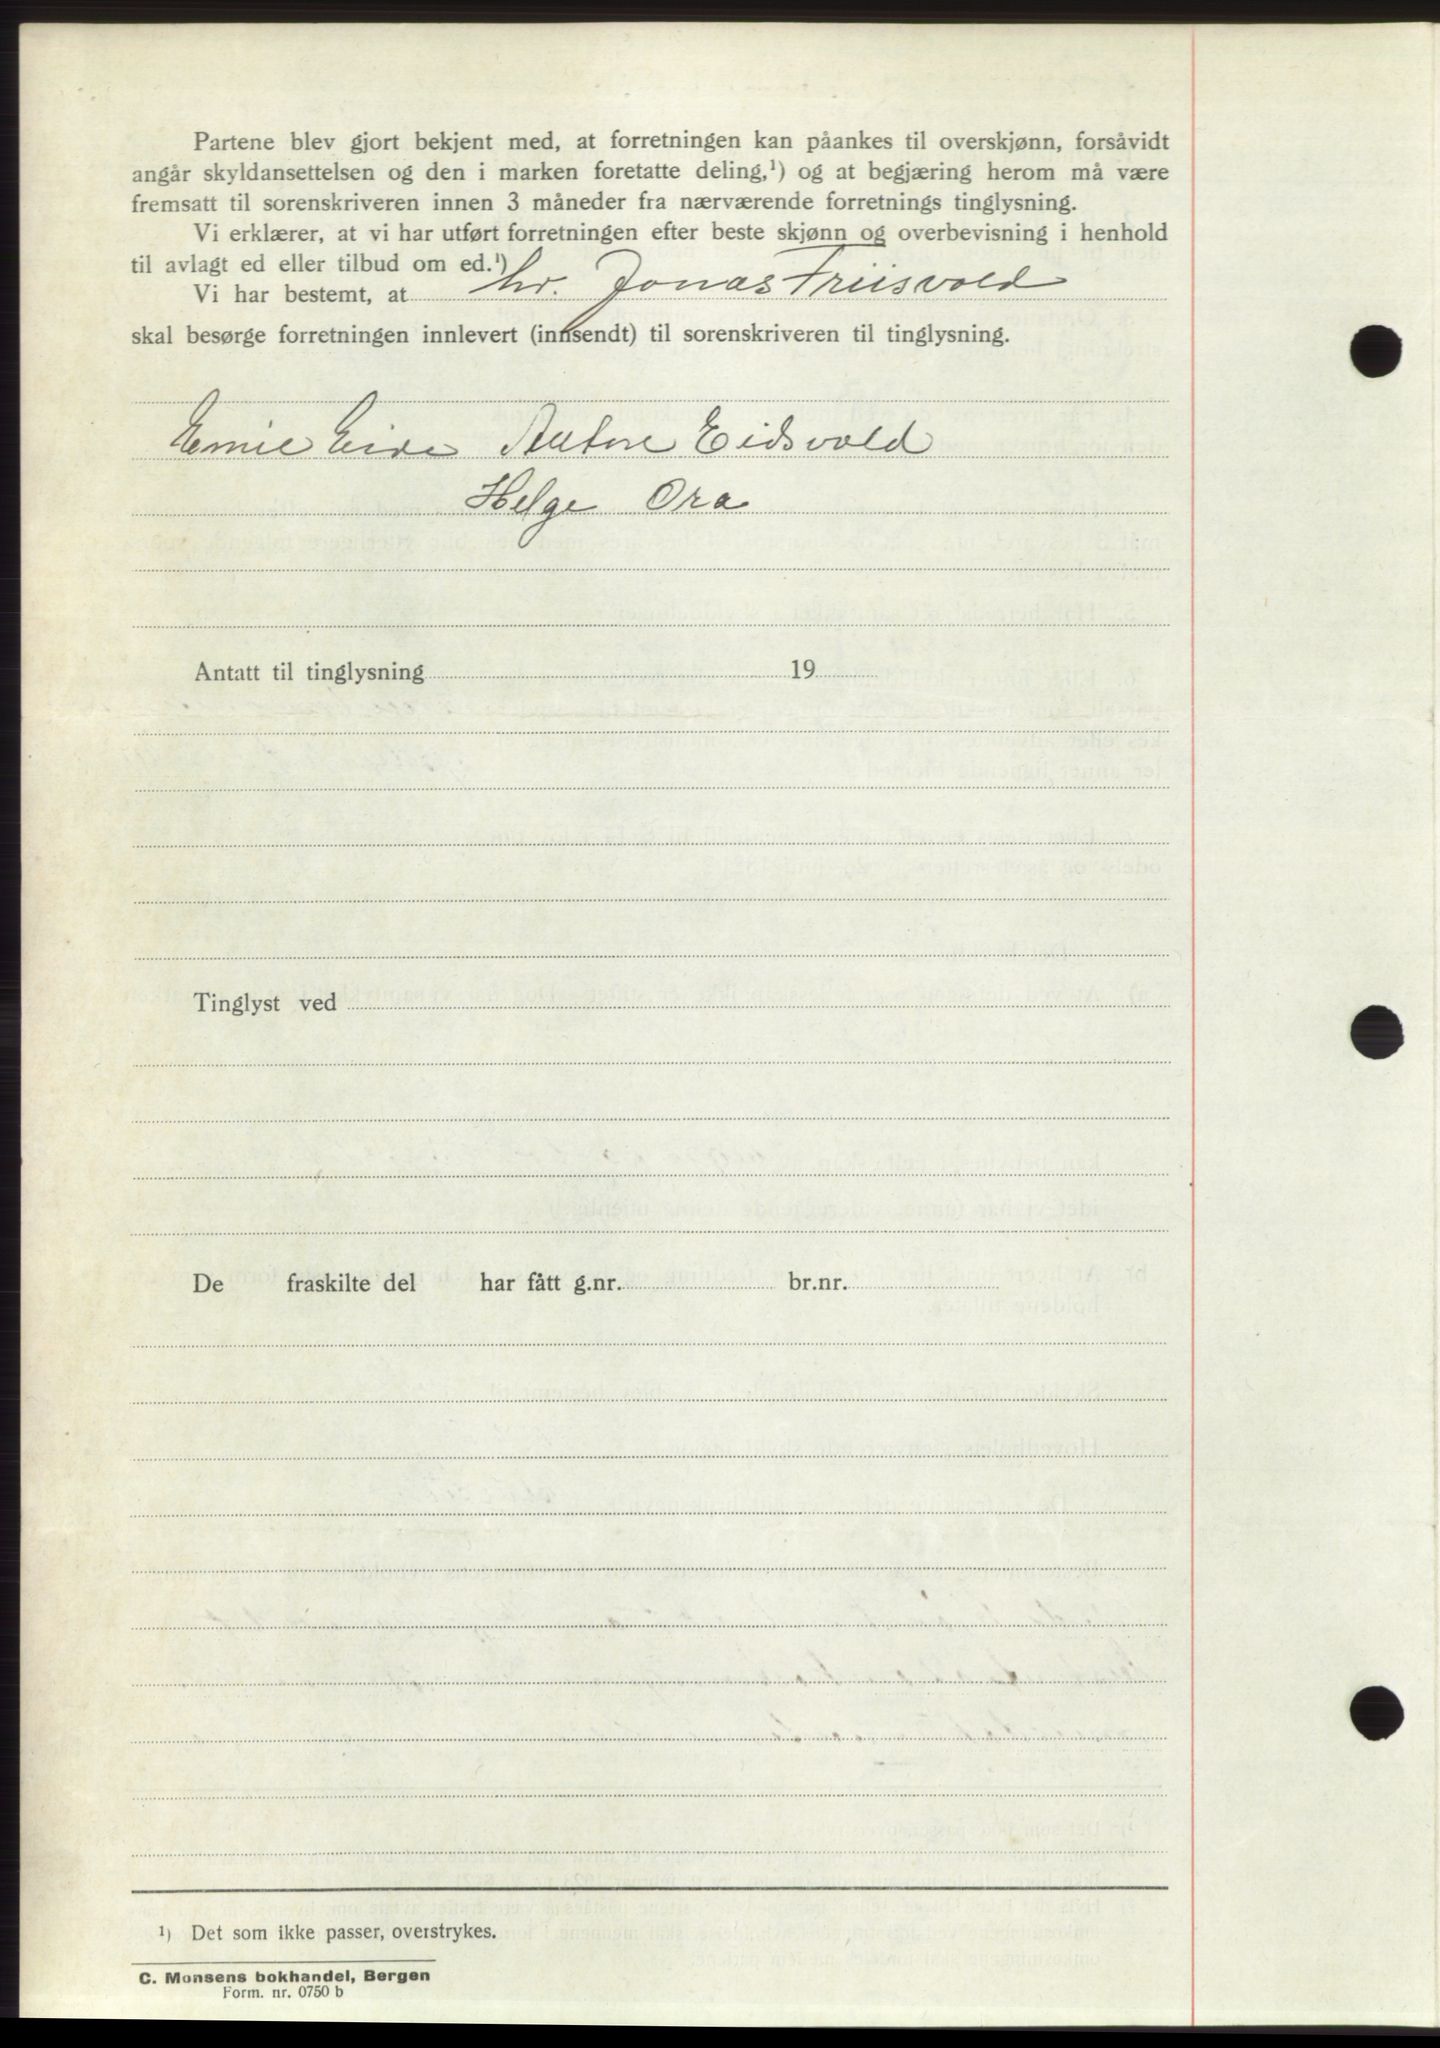 Partene blev gjort bekjent med, at forretningen kan påankes til overskjønn, forsåvidt
angår skyldansettelsen og den i marken foretatte deling,¹) og at begjæring herom må være
fremsatt til sorenskriveren innen 3 måneder fra nærværende forretnings tinglysning.
Vi erklærer, at vi har utført forretningen efter beste skjønn og overbevisning i henhold
til avlagt ed eller tilbud om ed.¹)
Vi har bestemt, at hr. Jonas Friisvold
skal besørge forretningen innlevert (innsendt) til sorenskriveren til tinglysning.
Emil Eide Anton Eidsvold
Helge Ora
Antatt til tinglysning 19
Tinglyst ved
De fraskilte del har fått g.nr. br.nr.
¹) Det som ikke passer, overstrykes.
C. Monsens bokhandel, Bergen
Form. nr. 0750 b